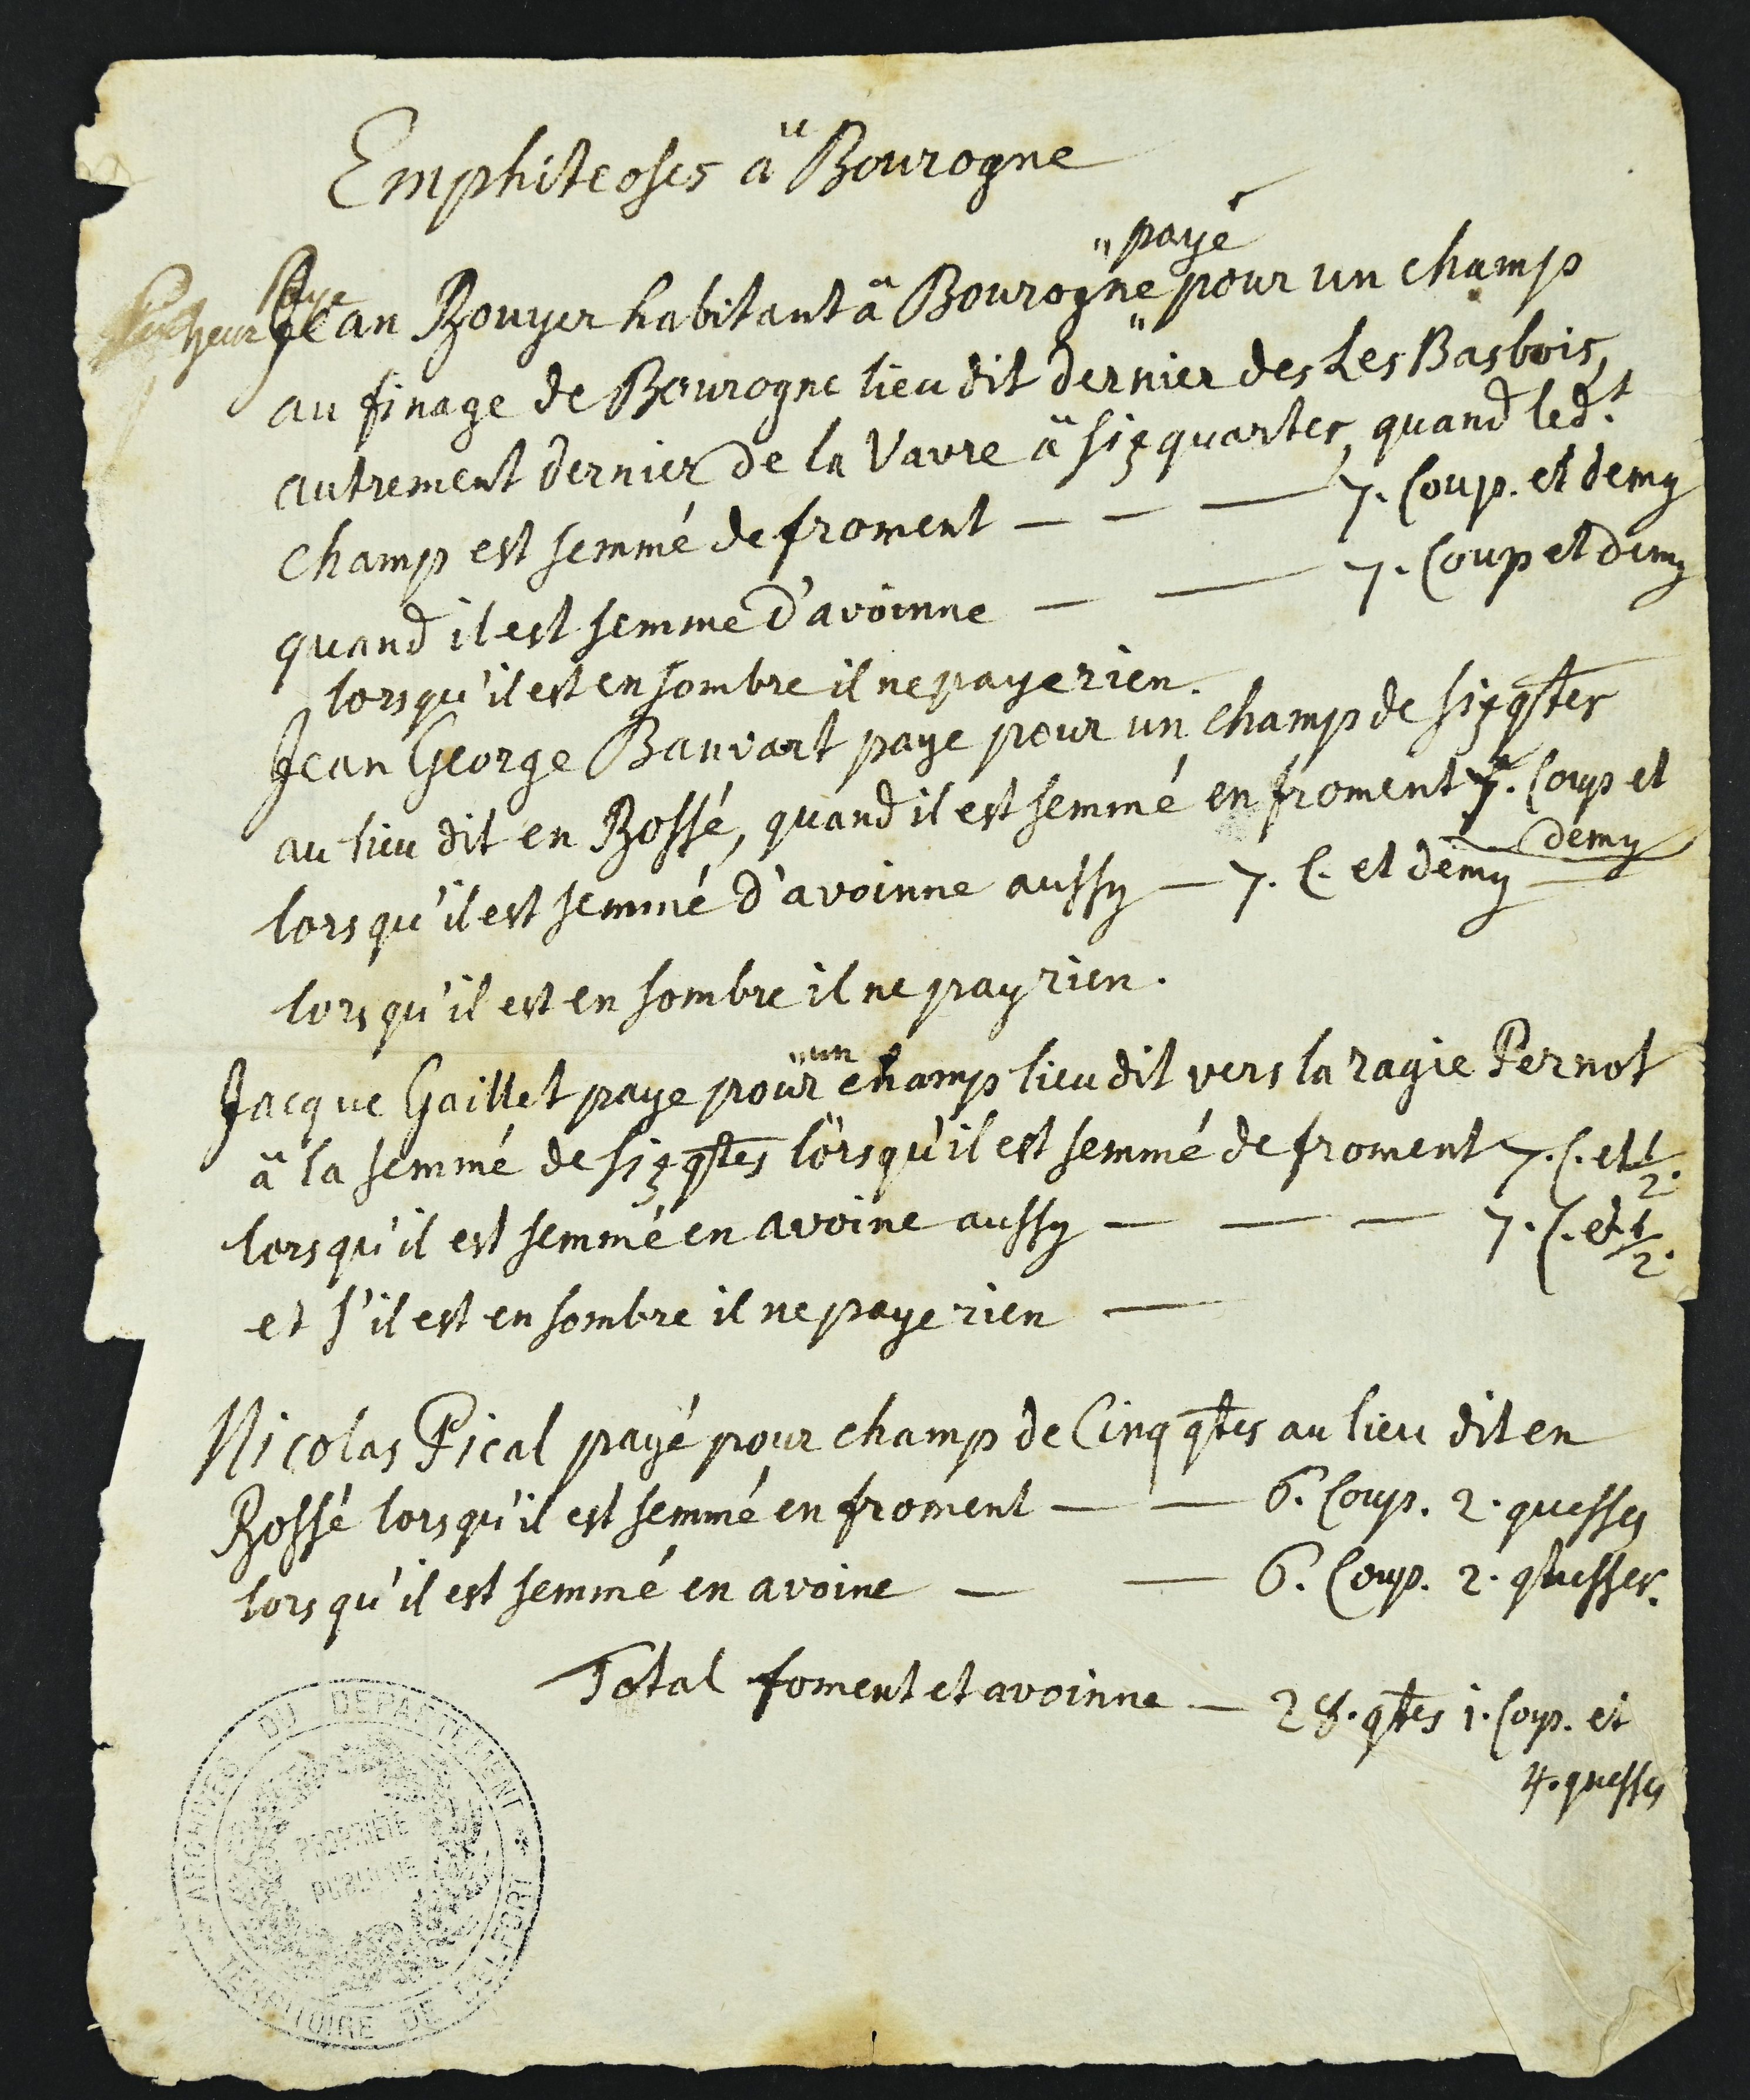 Emphiteoses à Bourogne
payé
Jean Rouyer habitant à Bourogne pour un champ
au finage de Bourogne lieu dit dernier des Les Basbois,
autrement dernier de la Vavre à six quartes, quand led.t
champ est semmé de froment — — — 7. Coup. et demy
quand il est semme d'avoinne — — 7. Coup et demy
lorsqu'il est en sombre il ne paye rien.
Jean George Banvart paye pour un champ de six qtes
au lieu dit en Rossé, quand il est semmé en froment 7. Coup et
demy
lorsqu'il est semmé d'avoinne aussy — 7. C. et demy —
lorsqu'il est en sombre il ne pay rien.
un
Jacque Gaillet paye pour champ lieu dit vers la ragie Pernot
à la semmé de six qtes lorsqu'il est semmé de froment 7. C. et 1/2.
lorsqu'il est semmé en avoine aussy — — — 7. C. et 1/2.
et s'il est en sombre il ne paye rien —
Nicolas Pical payé pour champ de Cinq qtes au lieu dit en
Rossé lorsqu'il est semmé en froment — — 6. Coup. 2. quesses
lorsqu'il est semmé en avoine — — 6. Coup. 2. quesses.
Total foment et avoinne — 28. qtes 1. Coup. et
4. quesses
ARCHIVES DU DEPARTEMENT
PROPRIÉTÉ
PUBLIQUE
TERRITOIRE DE BELFORT